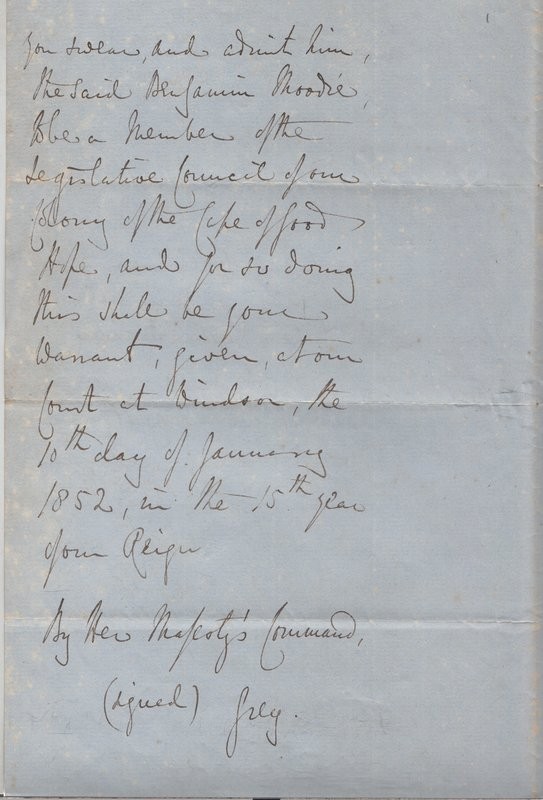 1
you swear, and admit him,
the said Benjamin Moodie,
to be a Member of the
Legislative Council of our
Colony of the Cape of Good
Hope, and for so doing
this shall be your
Warrant, given, at our
Court at Windsor, the
10th day of January
1852, in the 15th year
of our Reign
By Her Majesty's Command,
(signed) Grey.